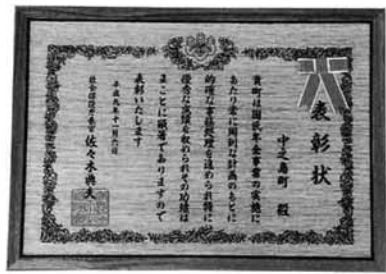 表彰状
中之島町 殿
貴町は国民年金事業の実施に
あたり常に周到な計画のもとに
的確な事務処理を進められ特に
優秀な成績を収められその功績は
まことに顕著でありますので
表彰いたします
平成九年十一月六日
社会保険庁長官 佐々木典夫